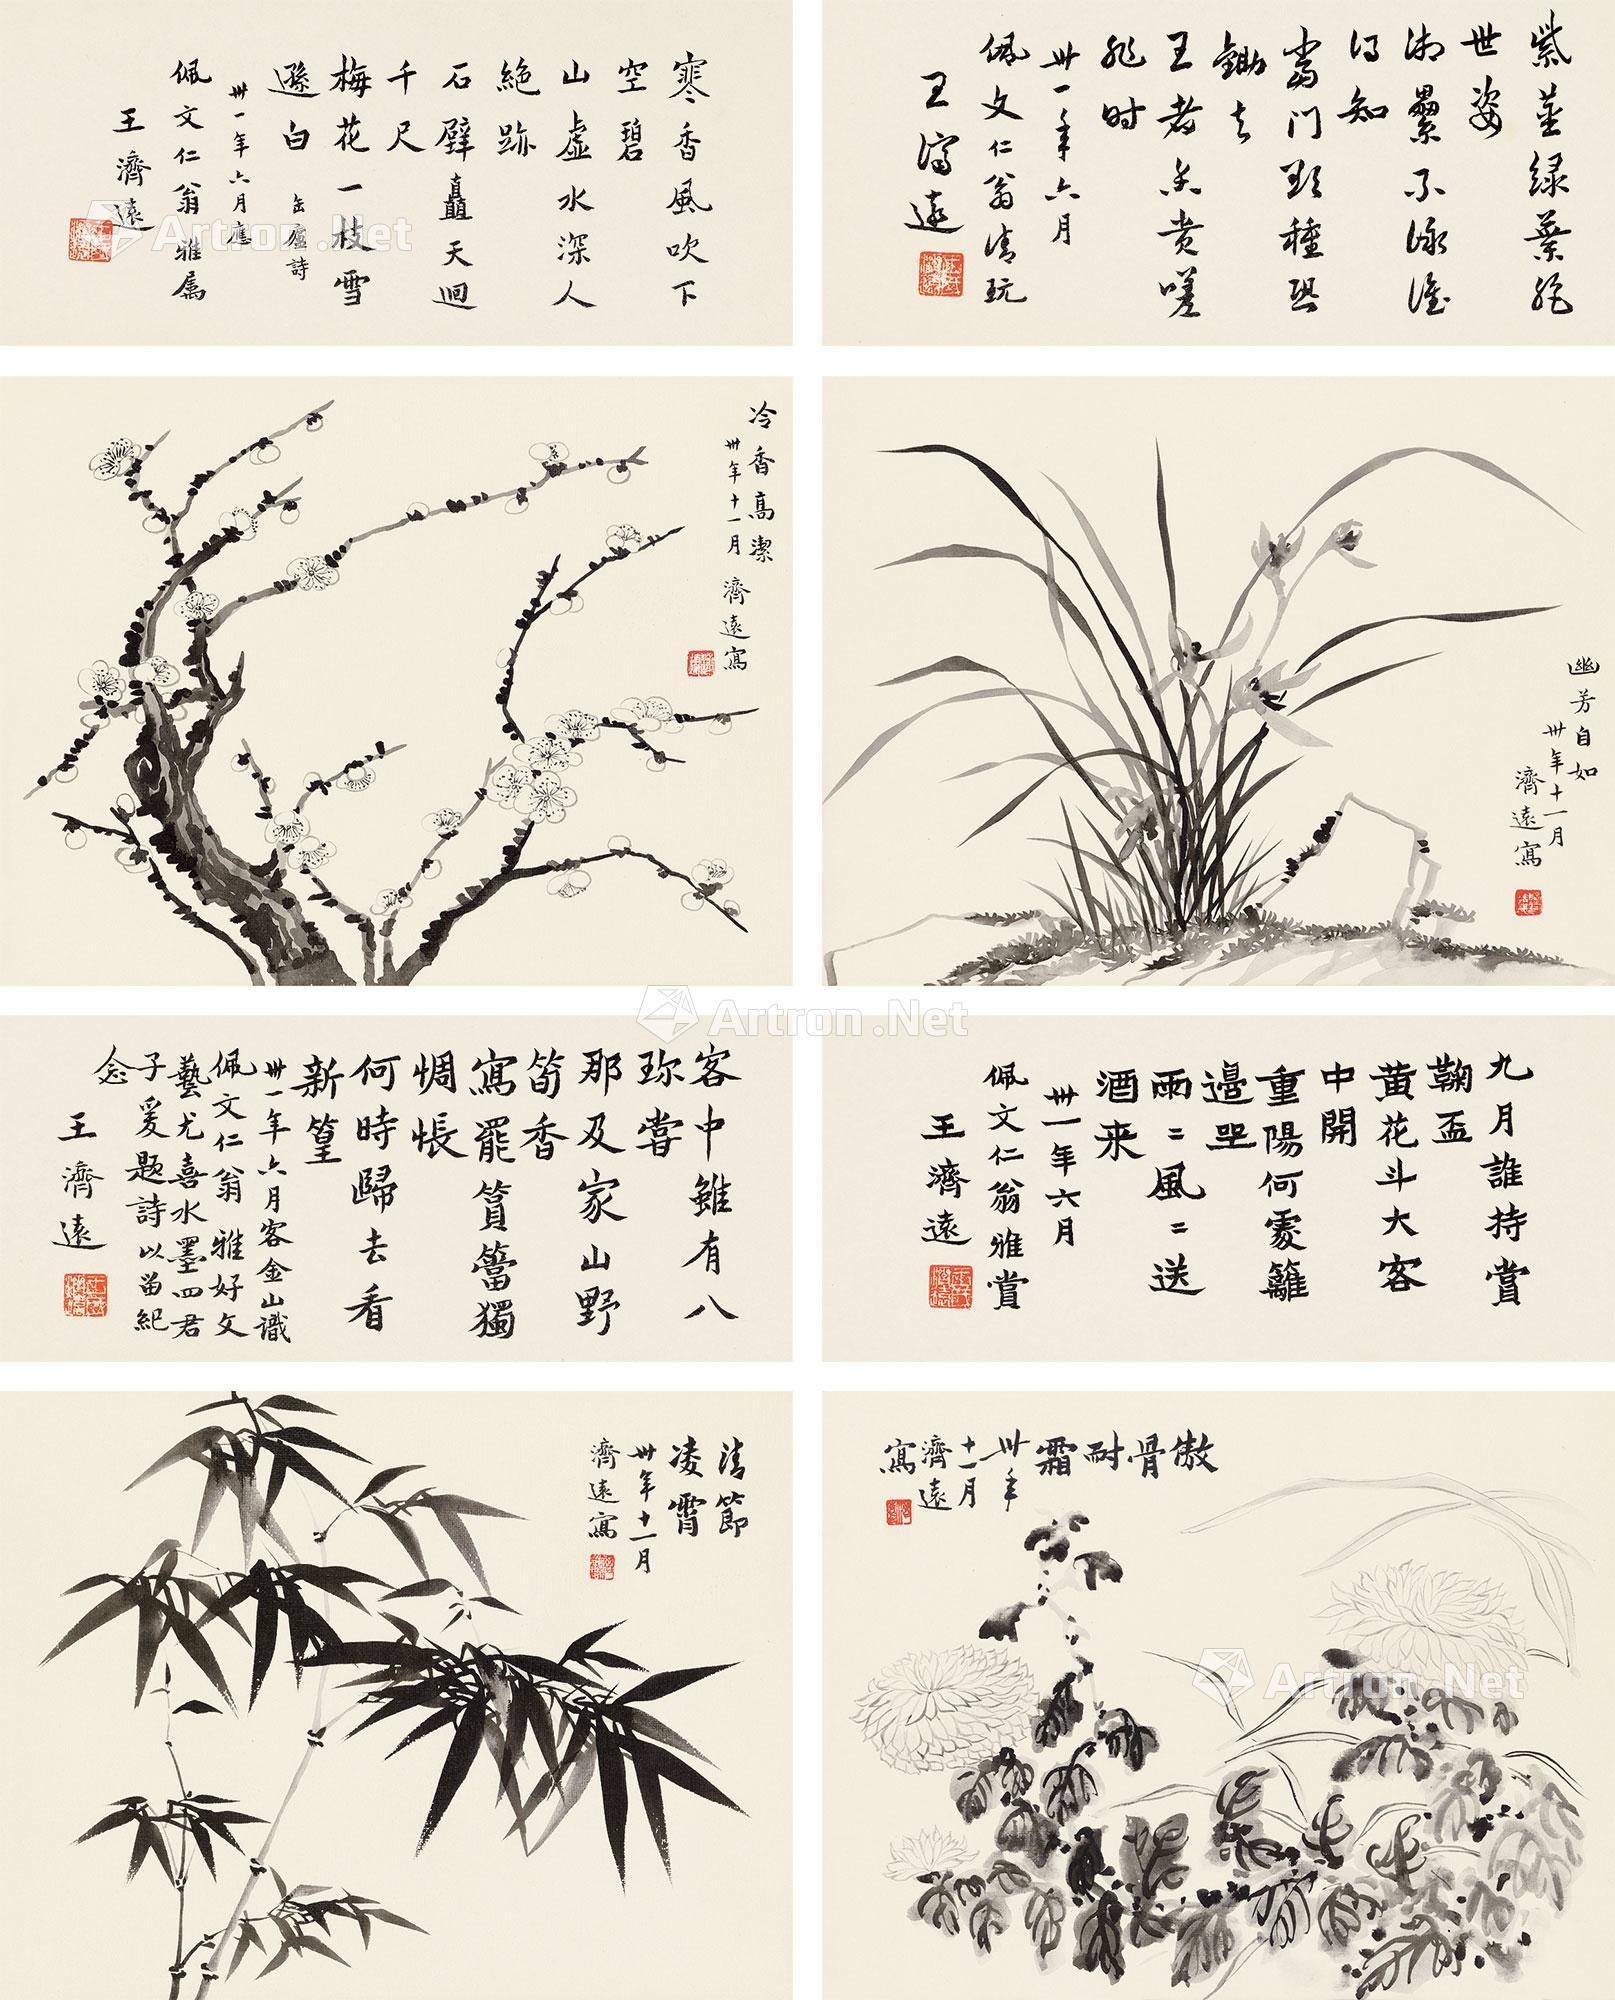 寒香風吹下
空碧
山虛水深人
絕跡
石壁矗天迴
千尺
梅花一枝雪
遜白 缶廬詩
卅一年六月應
佩文仁翁雅属
王濟遠
紫莖綠葉
世姿
當門
種恐
鋤去
王者
卅一年六月
佩文仁翁清玩
王濟遠
冷香高潔
卅年十一月
濟遠寫
幽芳自如
卅年十一月
濟遠寫
客中雖有八
珎嘗
那及家山野
筍香
寫罷篔簹獨
惆悵
何時歸去看
新篁
卅一年六月客金山識
佩文仁翁雅好文
藝尤喜水墨四君
子爰題詩以留紀
念
王濟遠
九月誰持賞
鞠盃
黄花斗大客
中開
重陽何處籬
邉坐
雨二風二送
酒来
卅一年六月
佩文仁翁雅賞
王濟遠
清節
凌霄
卅年十一月
濟遠寫
傲骨耐霜
卅年
十一月
濟遠
寫
Artron.Net
Artron.Net
Artron.Net